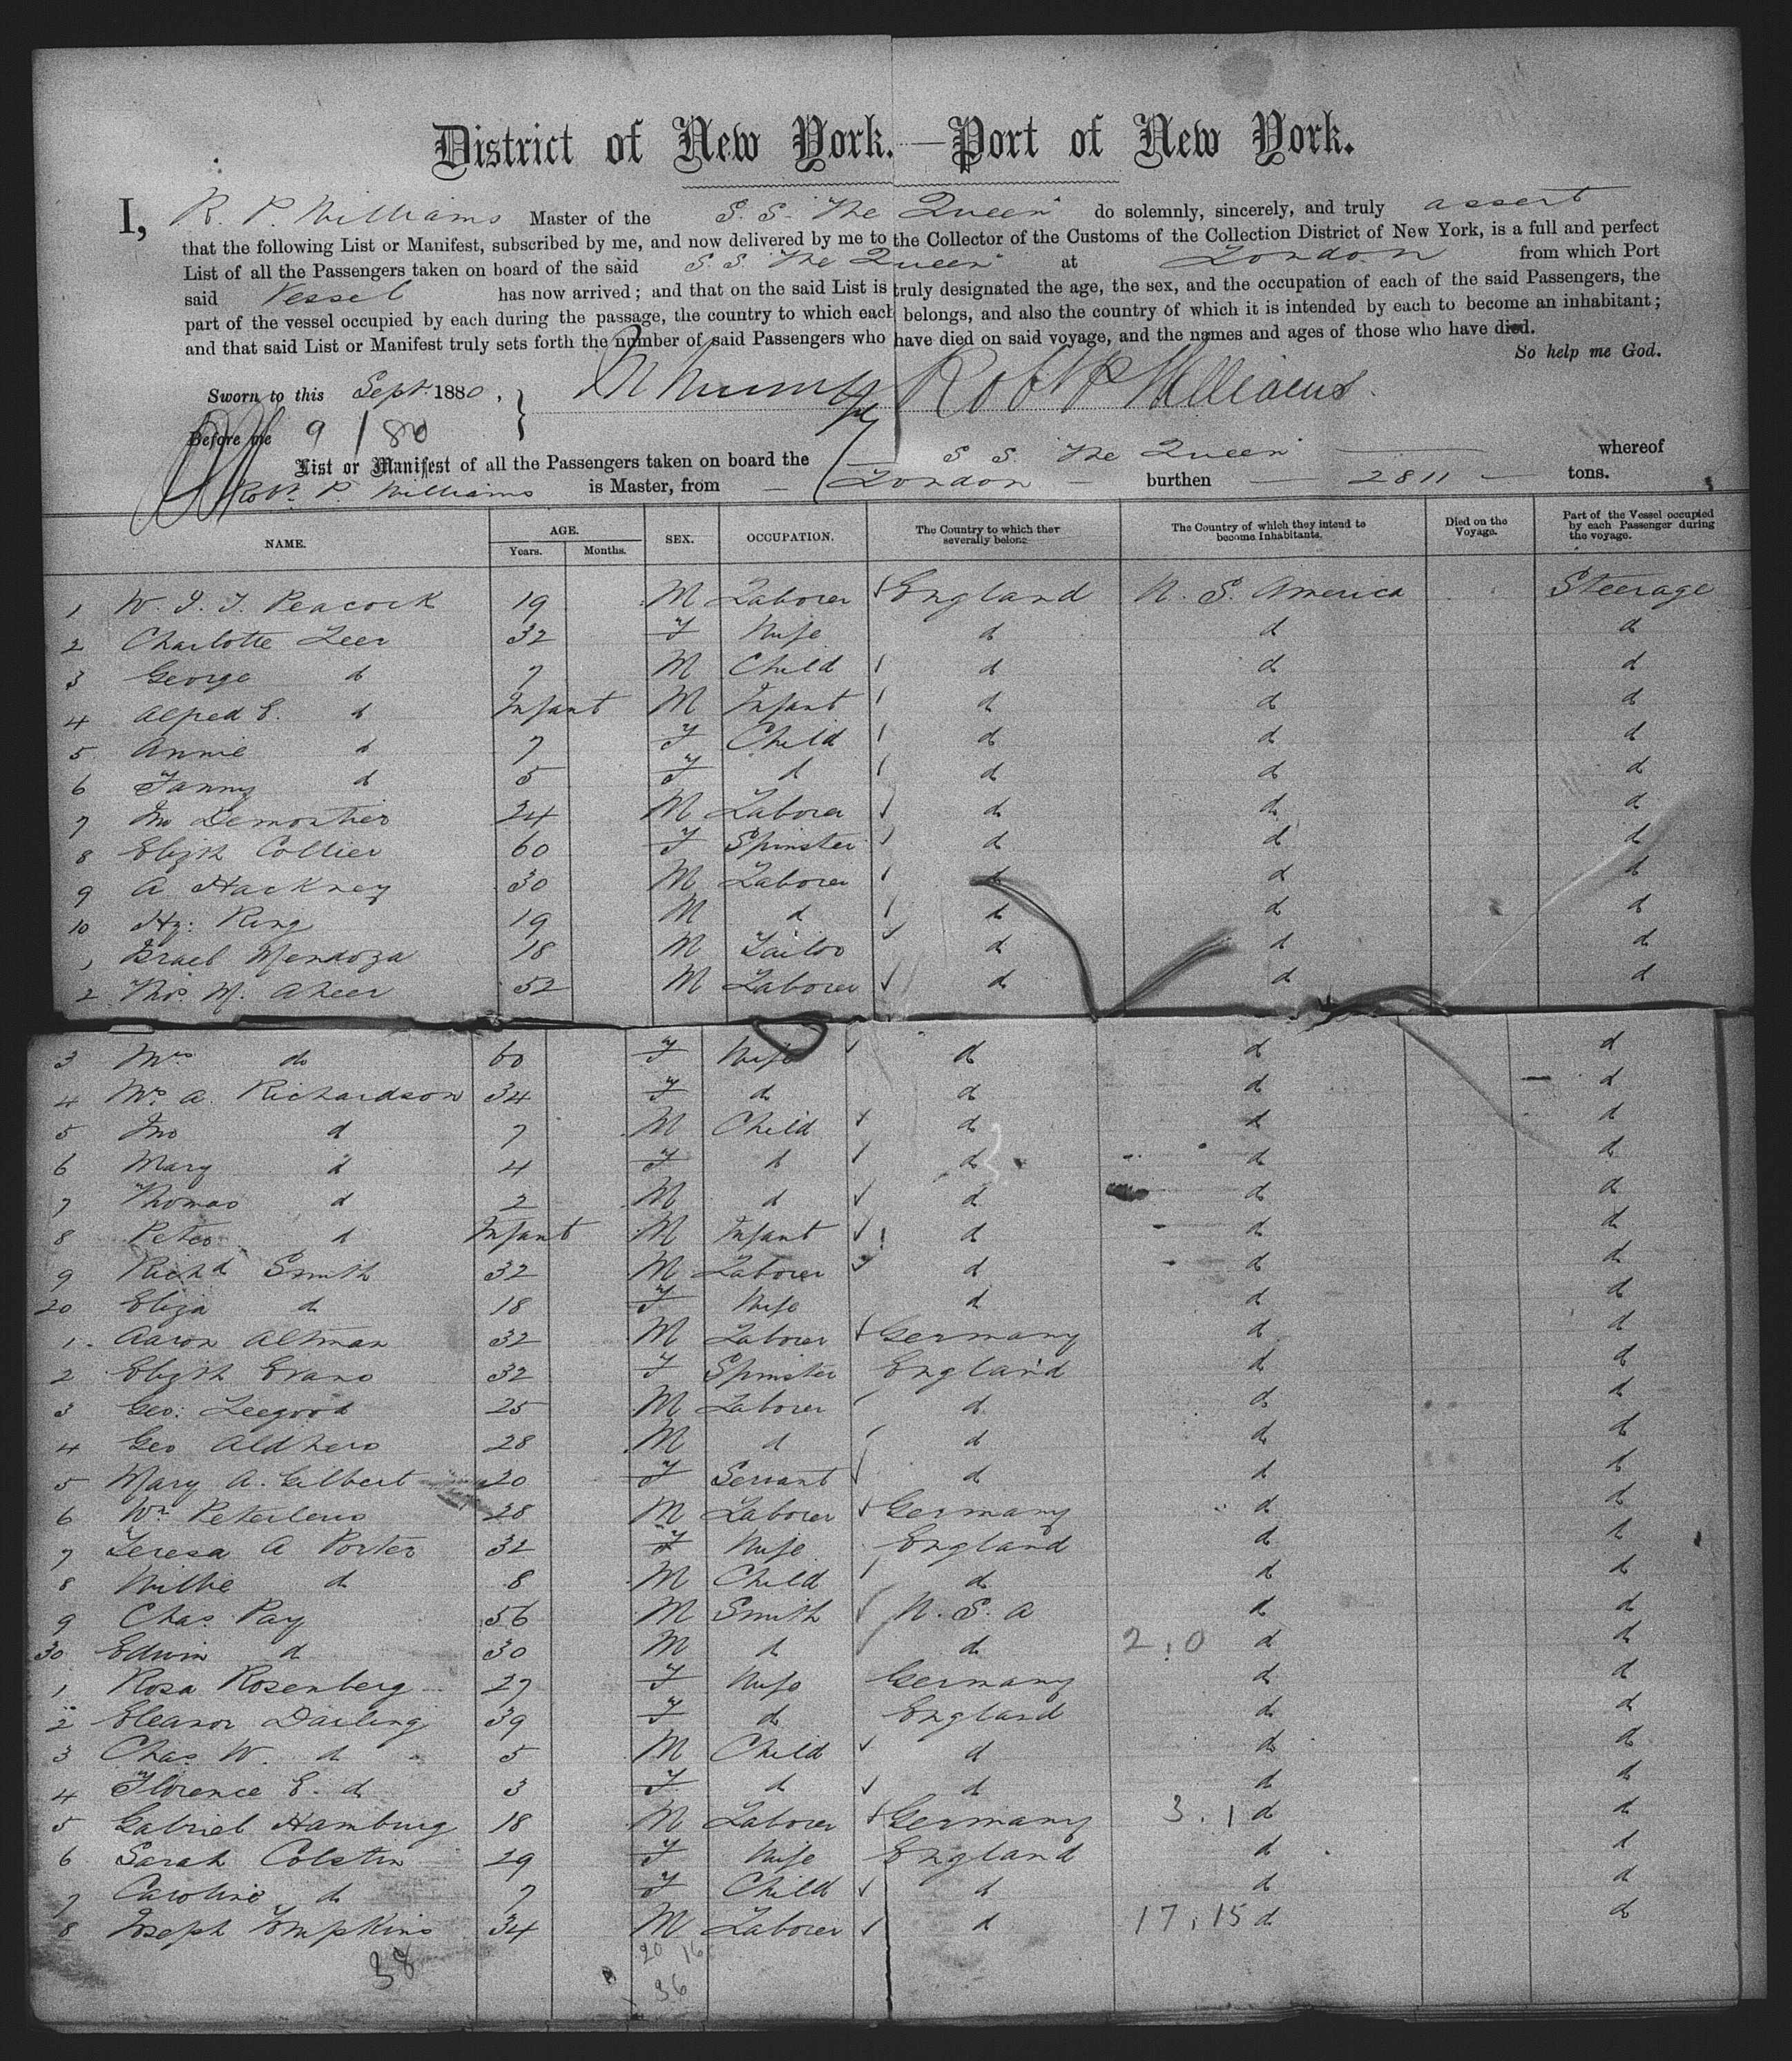 District of New York.—Port of New York.
I, R. P. Williams Master of the S. S. "The Queen" do solemnly, sincerely, and truly assert
that the following List or Manifest, subscribed by me, and now delivered by me to the Collector of the Customs of the Collection District of New York, is a full and perfect
List of all the Passengers taken on board of the said S. S. "The Queen" at London from which Port
said Vessel has now arrived; and that on the said List is truly designated the age, the sex, and the occupation of each of the said Passengers, the
part of the vessel occupied by each during the passage, the country to which each belongs, and also the country of which it is intended by each to become an inhabitant;
and that said List or Manifest truly sets forth the number of said Passengers who have died on said voyage, and the names and ages of those who have died.
So help me God.
Sworn to this Sept. 1880, } Robt P Williams
Before me 9 / 80
List or Manifest of all the Passengers taken on board the S S. "The Queen" whereof
Robt. P. Williams is Master, from London burthen 2811 tons.
NAME. AGE. Years. Months. SEX. OCCUPATION. The Country to which they severally belong The Country of which they intend to become Inhabitants. Died on the Voyage. Part of the Vessel occupied by each Passenger during the voyage.
1 W. J. J. Peacock 19 M Laborer England U. S. America Steerage
2 Charlotte Leer 32 F Wife d d d
3 George d 7 M Child d d d
4 Alfred E. d Infant M Infant d d d
5 Annie d 7 F Child d d d
6 Fanny d 5 F d d d d
7 Jno 24 M Laborer d d d
8 Elizth Collier 60 F Spinster d d d
9 A Hackney 30 M Laborer d d d
10 Hy: Ring 19 M d d d d
1 Israel Mendoza 18 M Tailor d d d
2 Thos M. 52 M Laborer d d d
3 Mrs do 60 F Wife d d d
4 Mrs A. Richardson 34 F d d d d
5 Jno d 7 M Child d d d
6 Mary d 4 F d d d d
7 Thomas d 2 M d d d d
8 Peter d Infant M Infant d d d
9 Richd Smith 32 M Laborer d d d
20 Eliza d 18 F Wife d d d
1 Aaron Altman 32 M Laborer Germany d d
2 Elizth Evans 32 F Spinster England d d
3 Geo: Leegood 25 M Laborer d d d
4 Geo 28 M d d d d
5 Mary A. Gilbert 20 F Servant d d d
6 Wm 28 M Laborer Germany d d
7 Teresa A Porter 32 F Wife England d d
8 Willie d 8 M Child d d d
9 Chas. Pay 56 M Smith U. S. A d d
30 Edwin d 30 M d d 2.0 d d
1 Rosa Rosenberg 27 F Wife Germany d d
2 Eleanor Darling 39 F d England d d
3 Chas W. d 5 M Child d d d
4 Florence E. d 3 F d d d d
5 Gabriel Hamburg 18 M Laborer Germany 3.1 d d
6 Sarah Colstin 29 F Wife England d d
7 Caroline d 7 F Child d d d
8 Joseph Tompkins 34 M Laborer d 17.15 d d
38 20 16
36